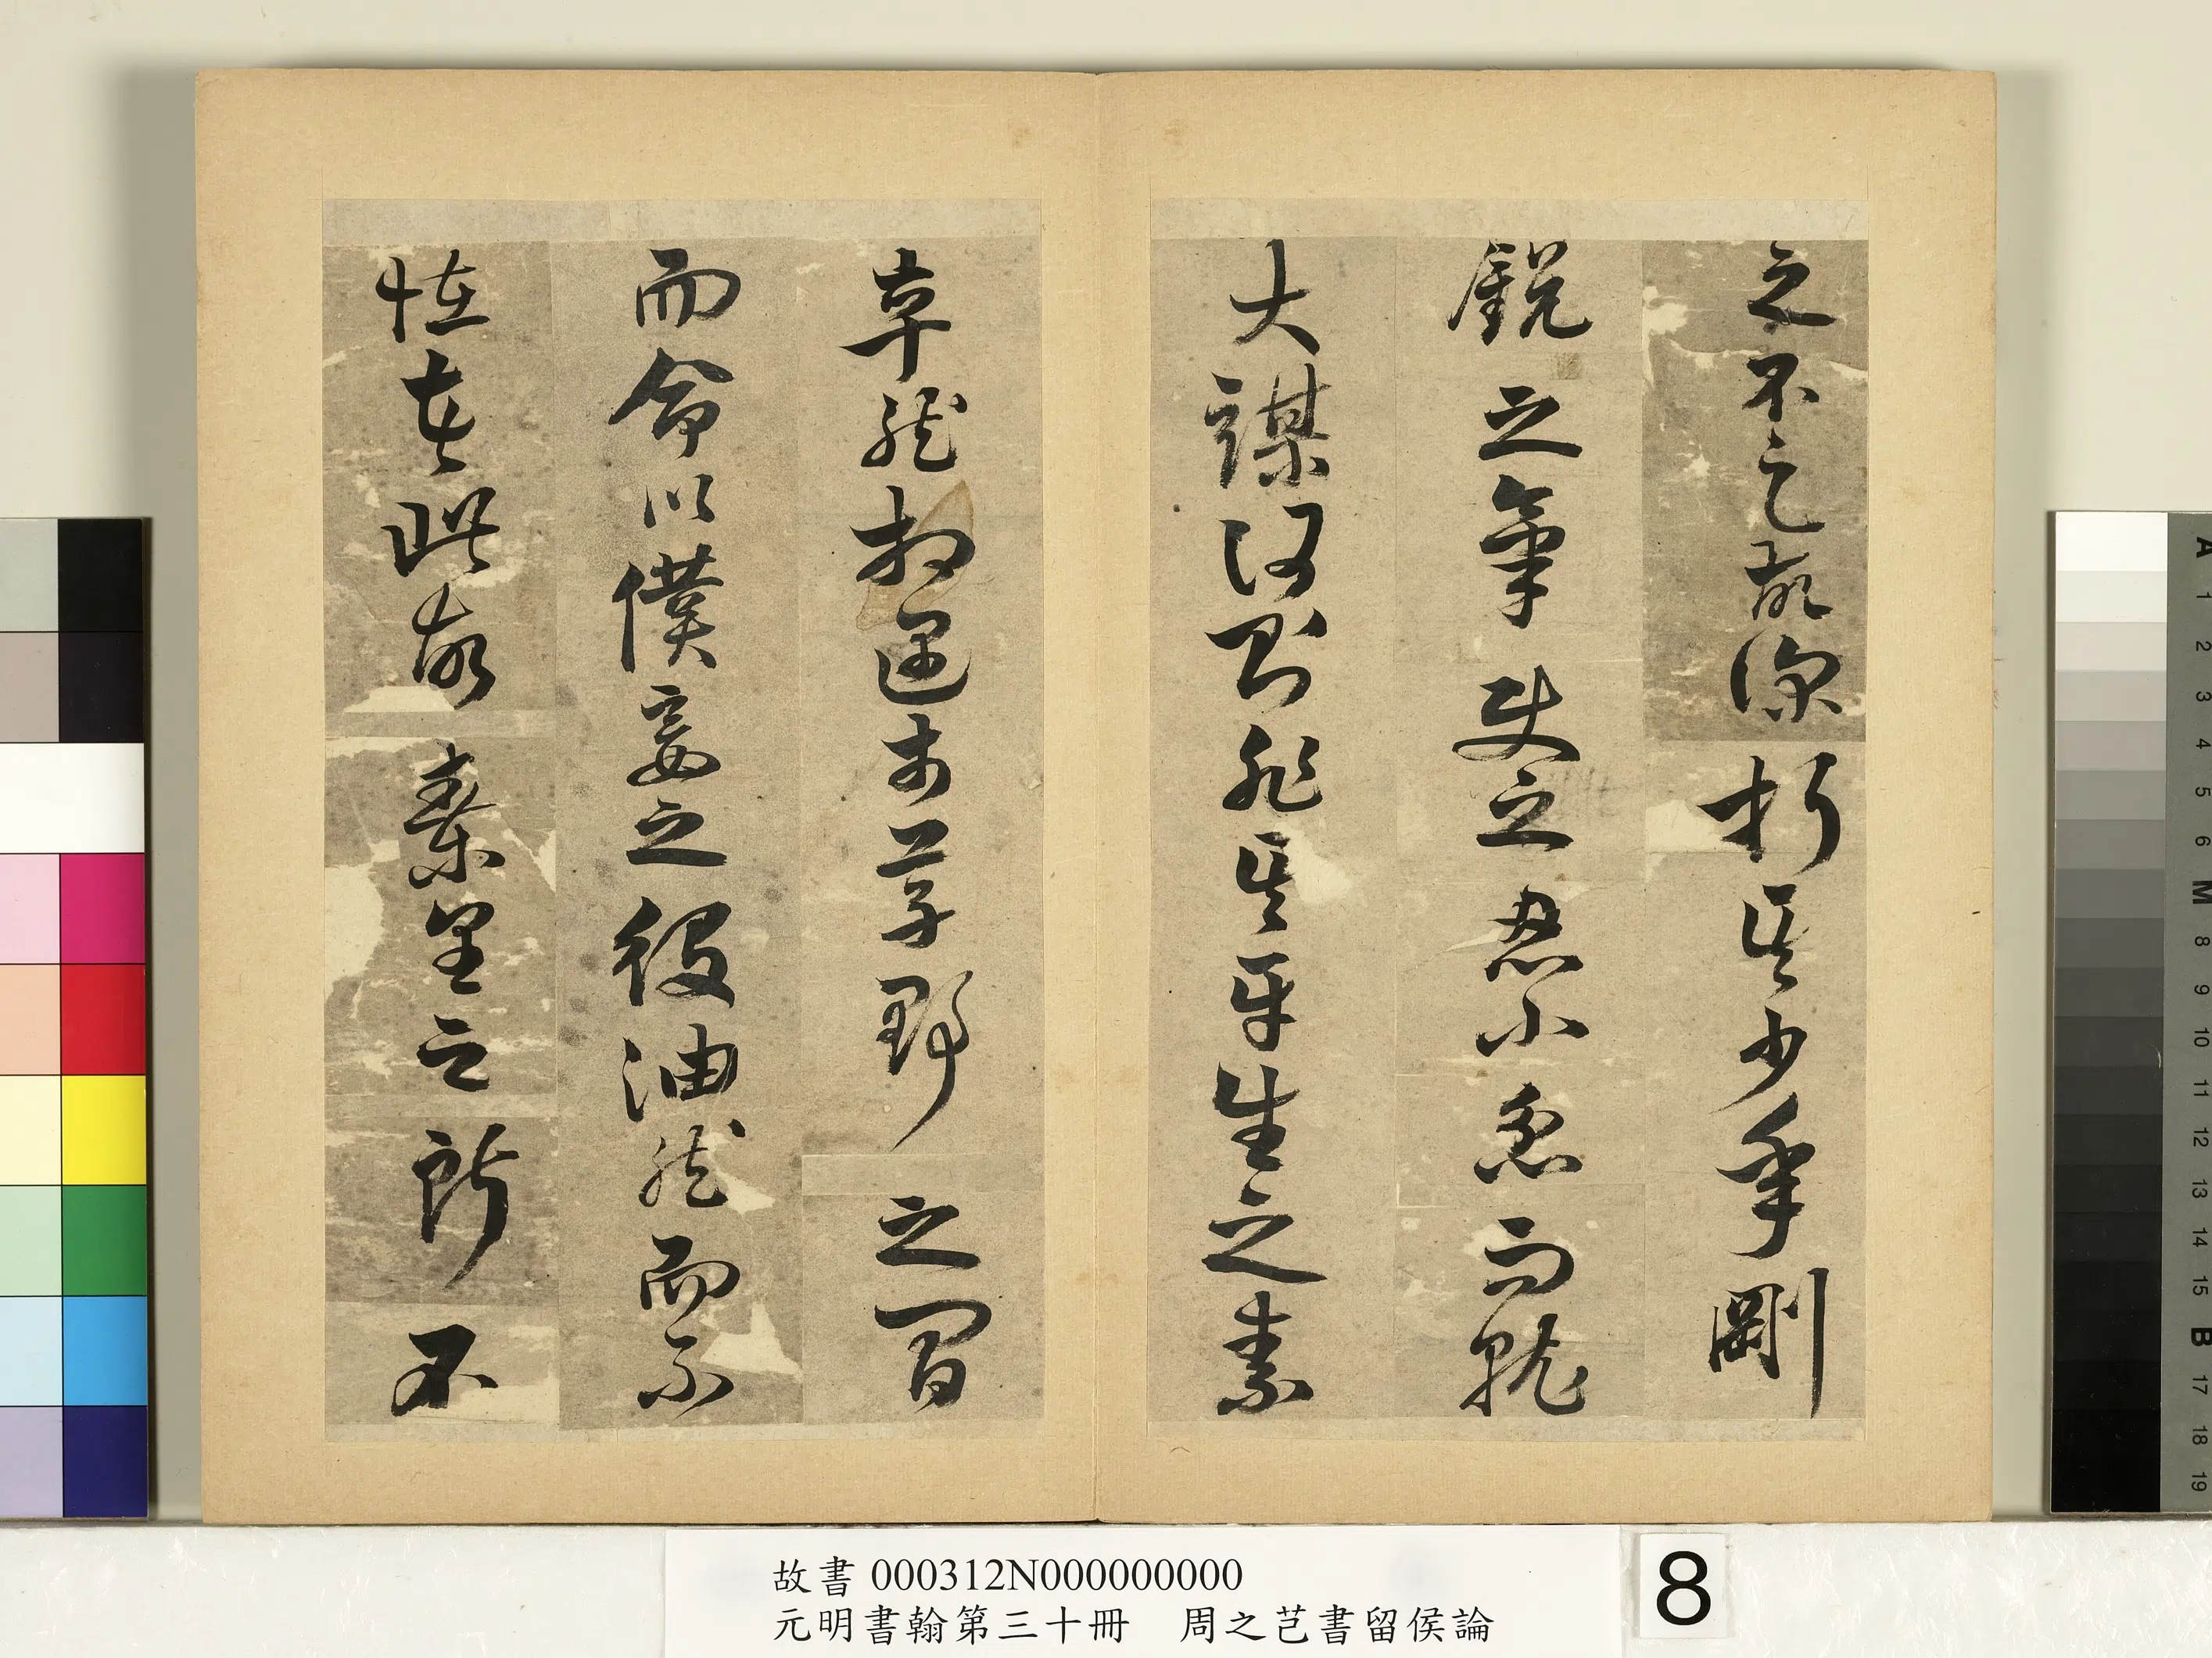 之不足故深折其少年剛
銳之氣使之忍小忿而就
大謀何則非其平生之素
卒然相遇於草野之間
而命以僕妾之役油然而不
怪者此故秦皇之所不
故書 000312N000000000
元明書翰第三十冊　周之芑書留侯論
8
A 1 2 3 4 5 6 M 8 9 10 11 12 13 14 15 B 17 18 19